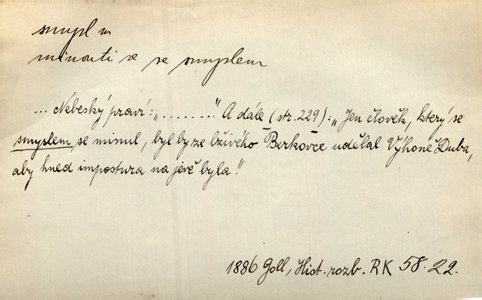 smysl m
minouti se se smyslem
... Nebeský praví: „.......“ A dále (str. 229): „Jen člověk, který se
smyslem se minul, byl by ze lživého Berkovce udělal Výhoně Duba,
aby hned impostura na jevě byla.“
1886 Goll, Hist. rozb. RK 58. 22.